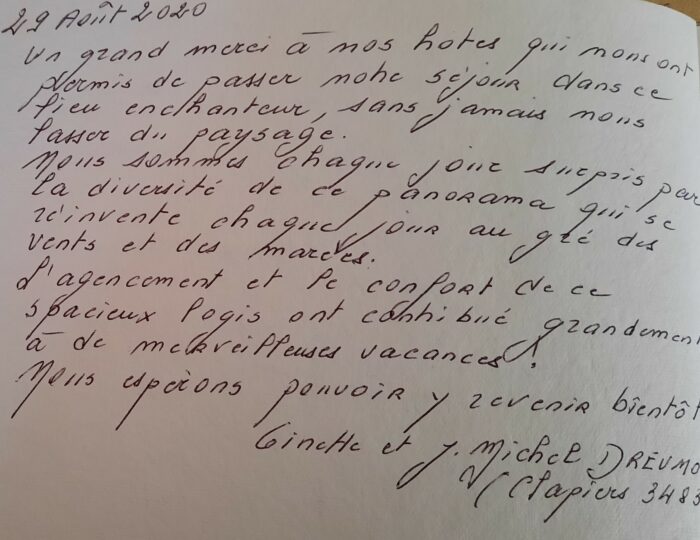 29 Août 2020
Un grand merci à nos hôtes qui nous ont
permis de passer notre séjour dans ce
lieu enchanteur, sans jamais nous
lasser du paysage.
Nous sommes chaque jour surpris par
la diversité de ce panorama qui se
réinvente chaque jour au gré des
vents et des marées.
L'agencement et le confort de ce
spacieux logis ont contribué grandement
à de merveilleuses vacances !
Nous espérons pouvoir y revenir bientôt
Ginette et J. Michel DREUMO
(Clapiers 3483